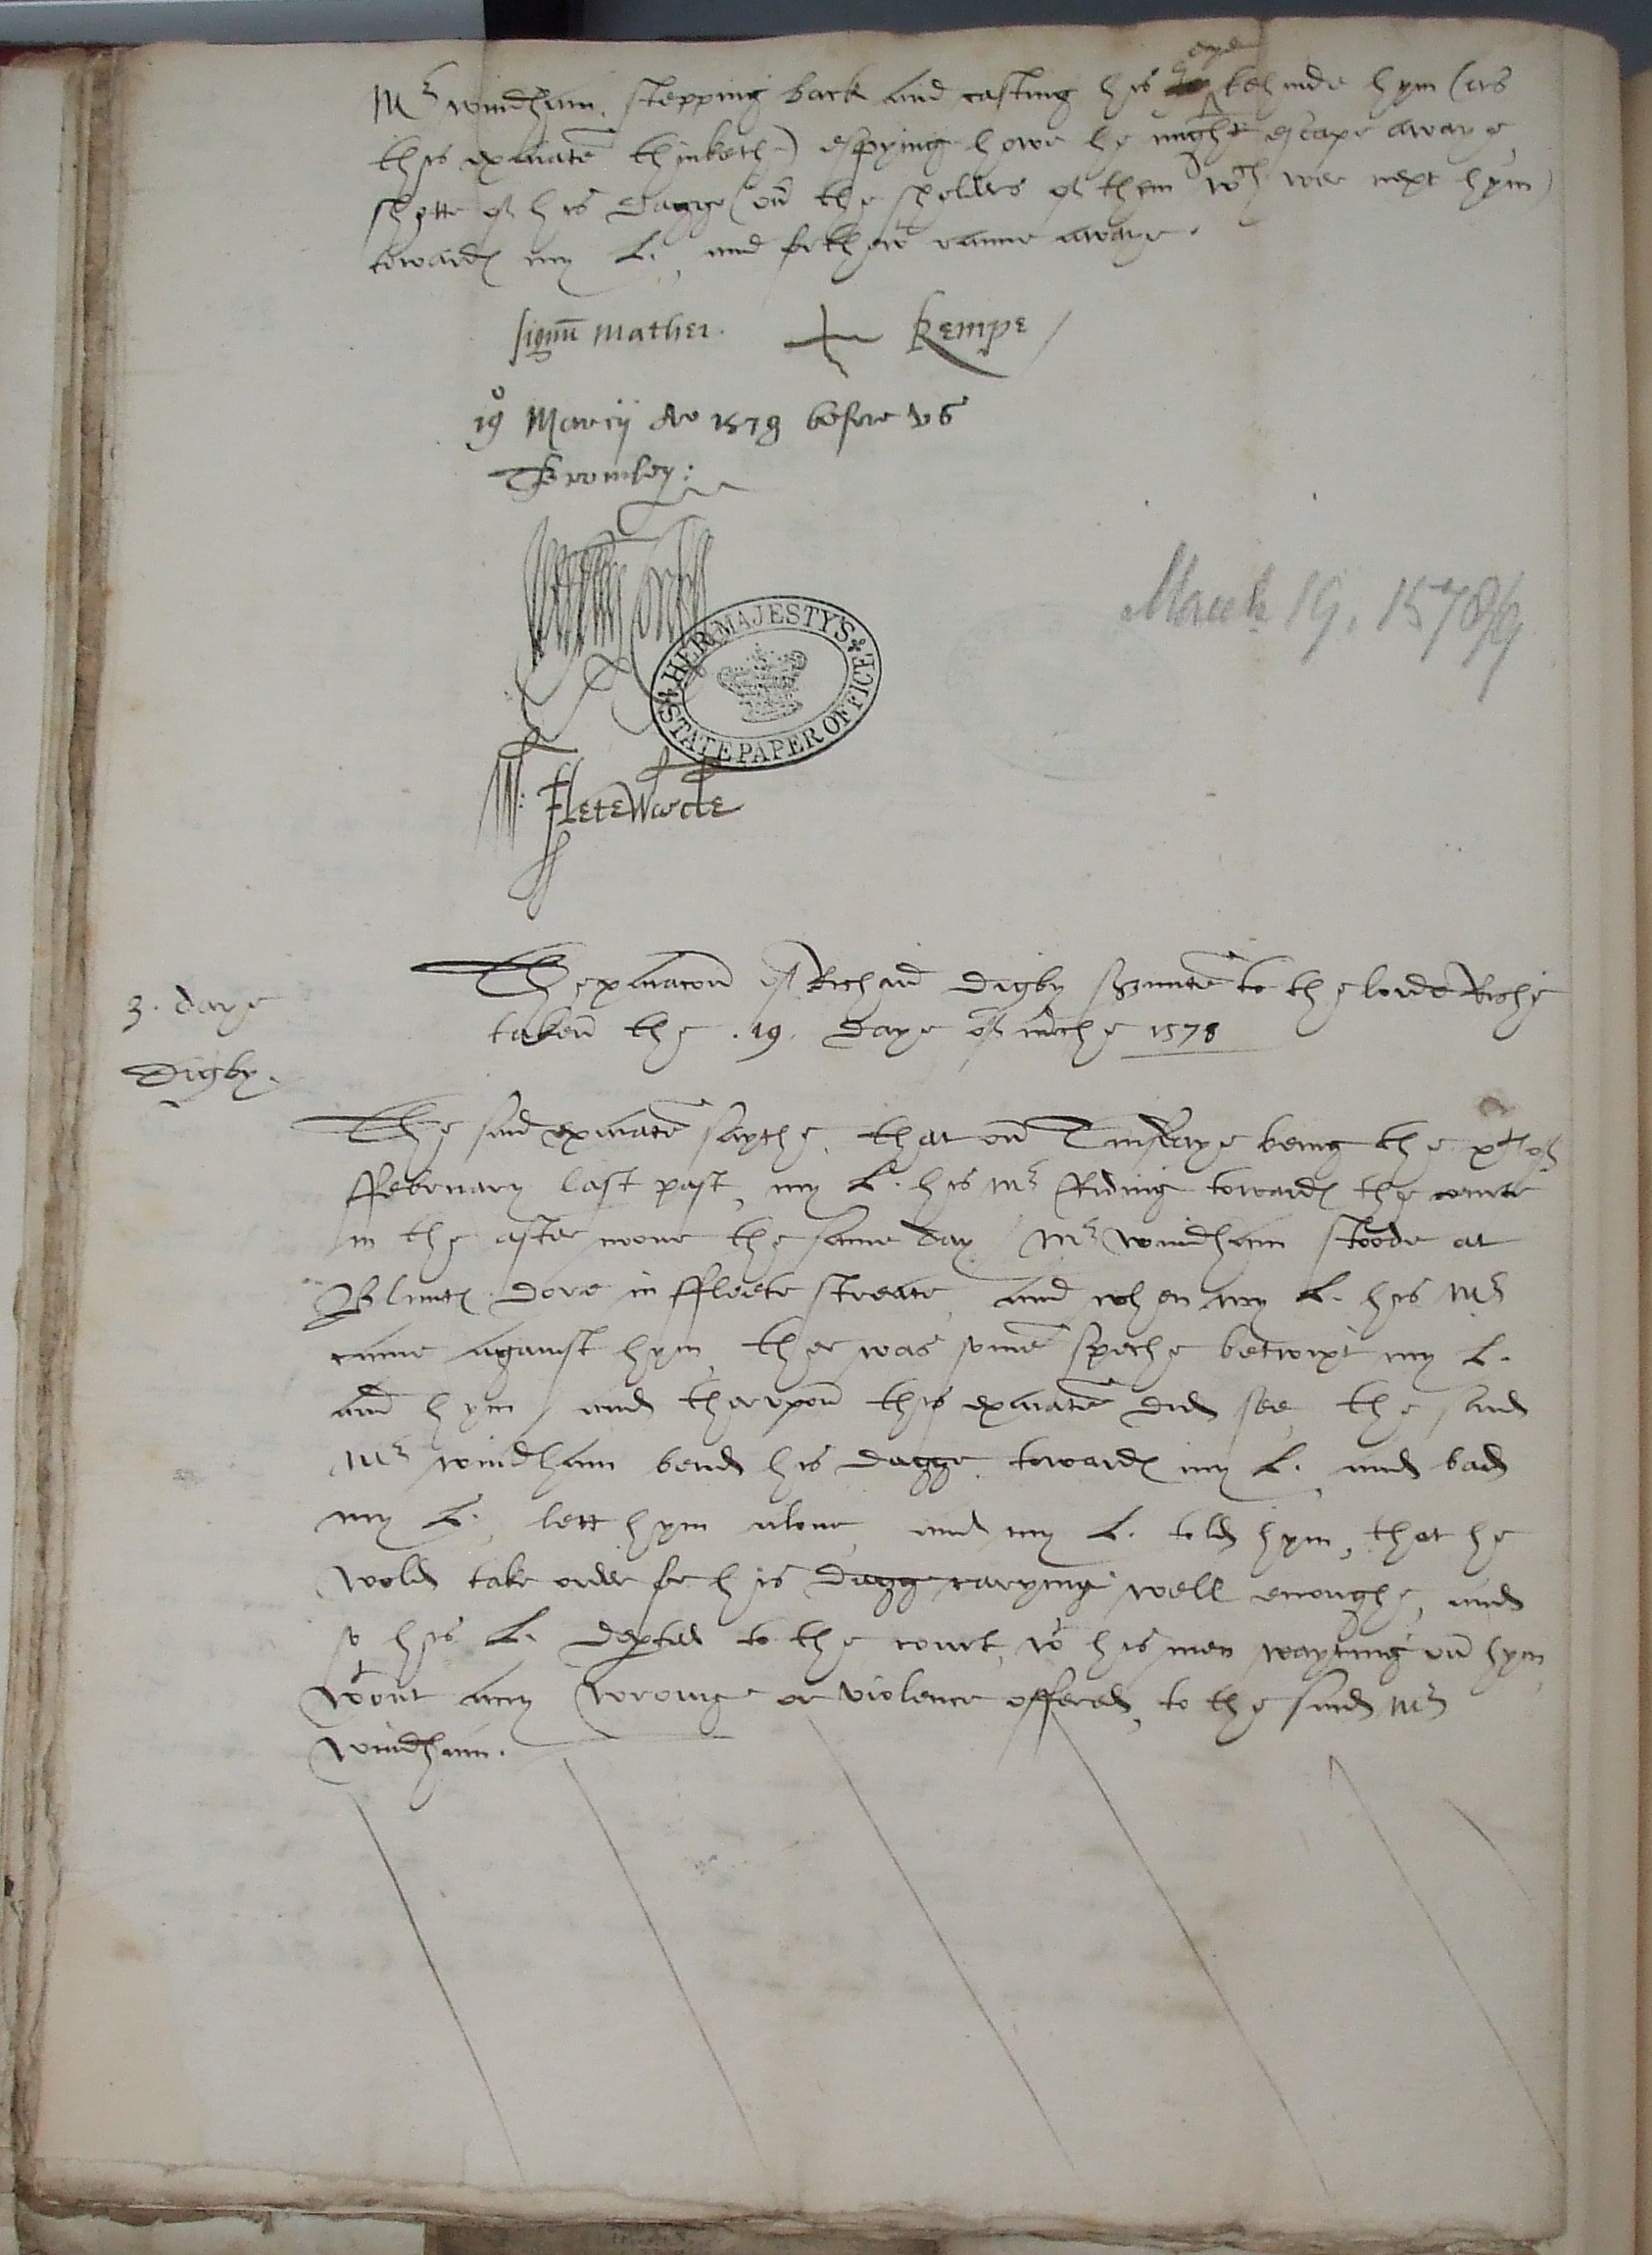 Mr windham. stepping back and casting his eye behinde hym (as
this examate thinketh) espying howe he might escape awaye
shotte of his dagge (on the sholders of them wch wer next hym)
towards my L., and forthwt ranne awaye.
signu mather. Kempe
19o Marcij Ao 1578 before us
T Bromley:
March 19. 1578/9
HER MAJESTY'S STATE PAPER OFFICE
W: Fletewoode
Thexamacon of Richard Digby servunte to the lorde Riche
taken the .19. Daye of mche 1578
3. daye
Digby.
The said examate saythe, that on Twisdaye being the xth of
ffebruary last past, my L. his Mr Riding towards the courte
in the after noone the same day / Mr windham stoode at
Blunts dore in ffleete streate, and when my L. his Mr
came against hym, ther was some speche betwixt my L.
and hym / and therupon this examate did see, the said
Mr windham bend his dagge towards my L. and bad
my L., lett hym alone, and my L. told hym, that he
wold take order for his dagg carying well enoughe, and
so his L. depted to the court, wt his men wayting on hym,
wtout any wronge or violence offered, to the said Mr
windham.